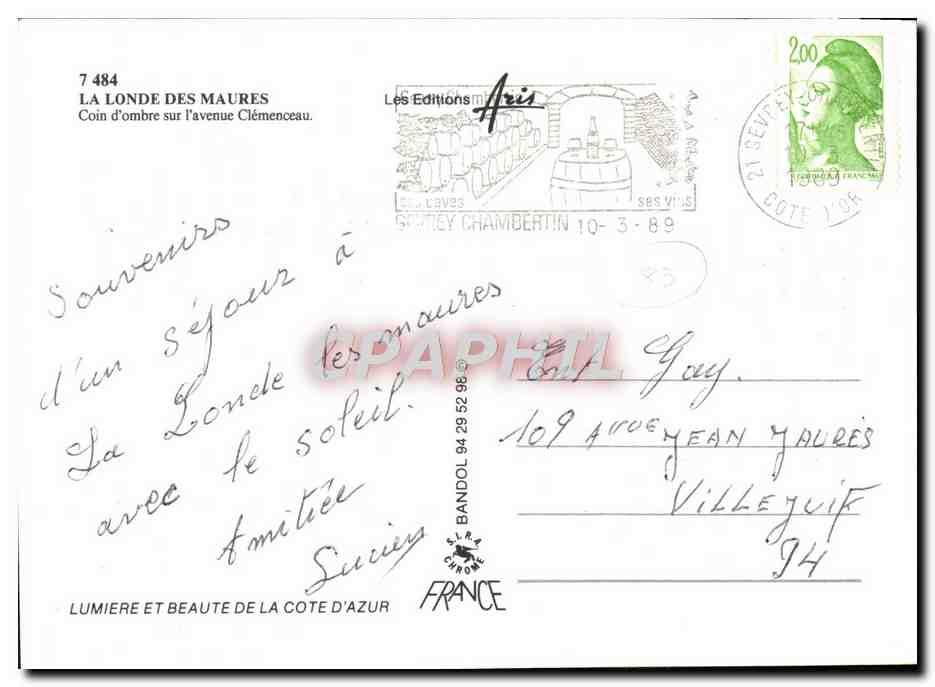 7 484
LA LONDE DES MAURES
Coin d'ombre sur l'avenue Clémenceau.
Les Editions Aris
ses caves
ses vins
GEVREY CHAMBERTIN 10-3-89
2,00
21 GEVREY
1989
COTE D'OR
83
Souvenirs
d'un séjour à
La Londe les maures
avec le soleil.
Amitiée
Lucien
CPAPHIL
BANDOL 94 29 52 98 ©
S.I.R.A.
CHROME
FRANCE
Ent Gay.
109 Avenue JEAN JAURES
VILLEJUIF
94
LUMIERE ET BEAUTE DE LA COTE D'AZUR